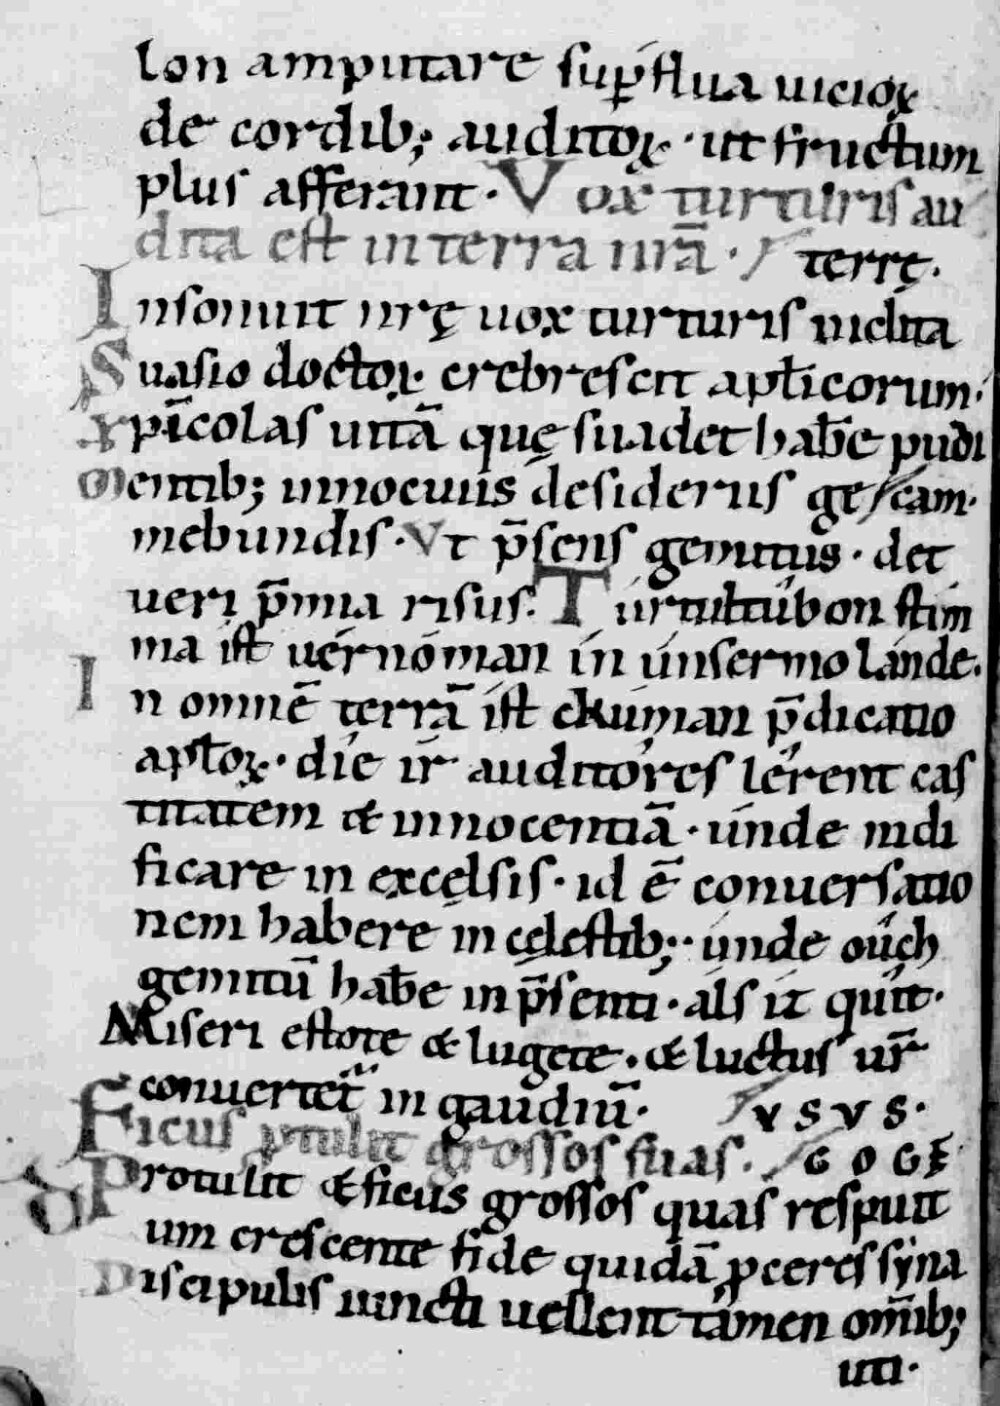 lon amputare sup̄flua uicioꝝ
de cordib; auditoꝝ · ut fructum
plus afferant · Vox turturis au
dita est in terra nr̄a · / terrę.
Insonuit nrę uox turturis indita
Suasio doctoꝝ crebrescit apłicorum ·
xp̄icolas uitā quę suadet hab̄e pudi
Mentib; innocuus desideriis ge / cam ·
mebundis · Vt p̄sens gemitus · det
ueri p̄mia risus. Turtultûbon stim
ma ist uérnóman in únsermo lánde.
In omnē terrā ist chúman p̄dicatio
apłoꝝ · die ir auditores lêrent cas
titatem & innocentiā · únde nidi
ficare in excelsis · id ē conuersatio
nem habere in cęlestib; · únde oûch
gemitū hab̄e in p̄senti · als it quît ·
Miseri estote & lugete · & luctus ur̄
conuertet̄ in gaudiū · / VSVS ·
Ficus ꝓtulit grossos suas. / GOGĘ
Protulit & ficus grossos quas respuit
Dum crescente fide quidā ꝓceres syna
Discipulis iuncti uellent tamen om̄ib;
uti ·